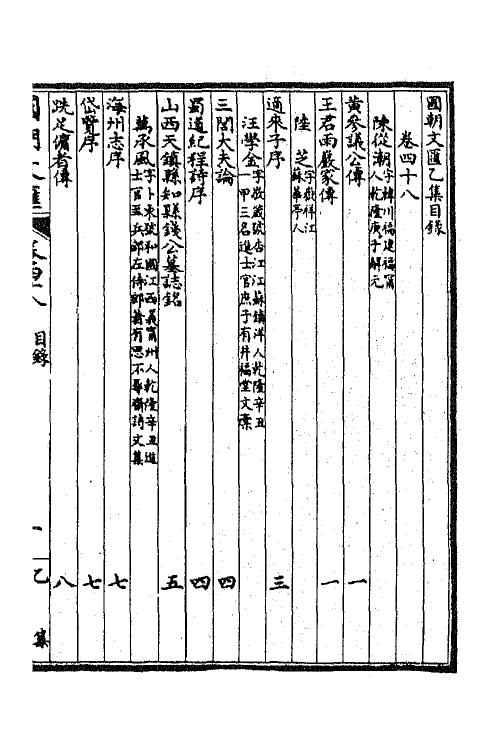 國朝文匯乙集目錄
卷四十八
陳從潮字韓川福建福甯人乾隆庚子解元
黃參議公傳 一
王君雨嚴家傳 一
陸 芝字敬祥江蘇華亭人
適來子序 三
汪學金字敬箴號杏江江蘇鎮洋人乾隆辛丑一甲三名進士官庶子有井福堂文稾
三閭大夫論 四
蜀道紀程詩序 四
山西天鎮縣知縣錢公墓誌銘 五
萬承風字卜東號和圃江西義甯州人乾隆辛丑進士官至兵部左侍郎著有思不辱齋詩文集
海州志序 七
岱覽序 七
跣足傭者傳 八
國朝文匯 卷四十八 目錄 一 乙集